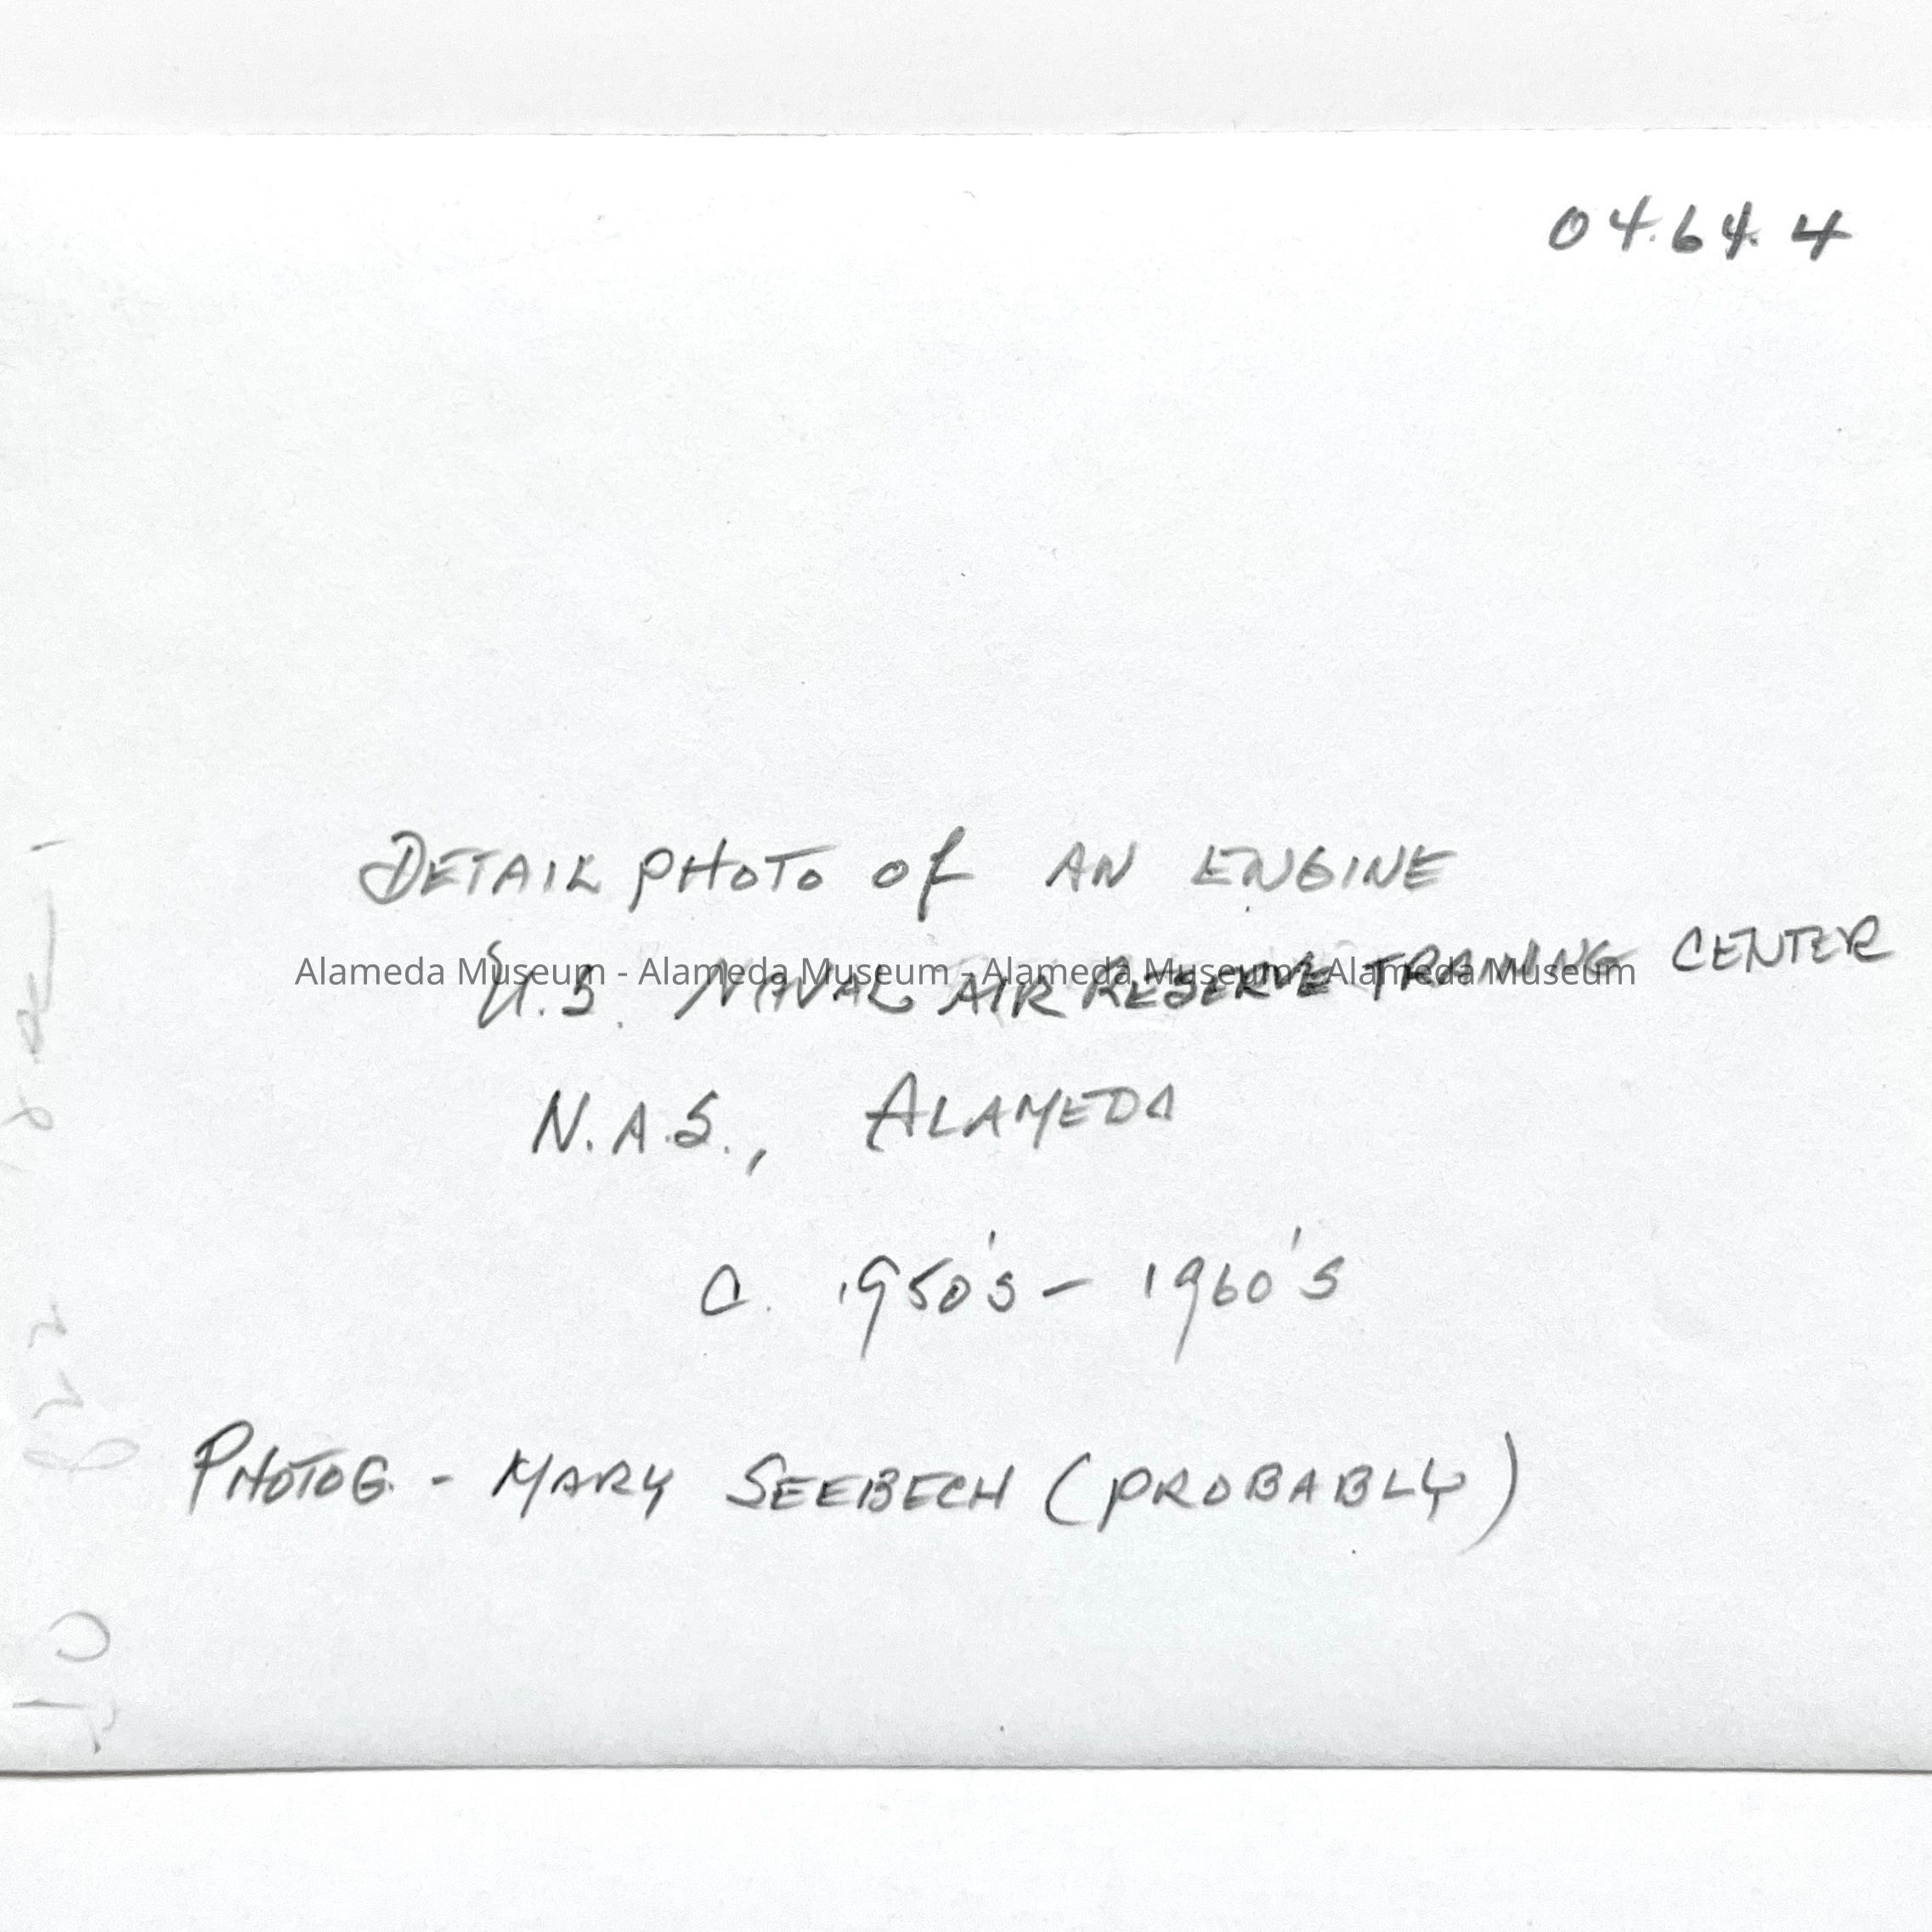 04.64.4
DETAIL PHOTO of AN ENGINE
U.S. NAVAL AIR RESERVE TRAINING CENTER
Alameda Museum - Alameda Museum - Alameda Museum - Alameda Museum
N.A.S., ALAMEDA
C. 1950's - 1960's
PHOTOG. - MARY SEEBECH (PROBABLY)